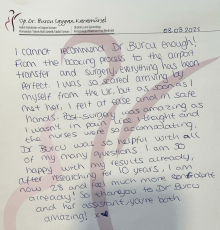 Op. Dr. Burcu Cezayir Karamürsel
09.08.2025
I cannot recommend Dr Burcu enough!
From the booking process to the airport
transfer and surgery, everything has been
perfect. I was so scared arriving by
myself from the UK, but as soon as I
met her, I felt at ease and in safe
hands. Post-surgery was amazing as
I wasn't in pain as I thought and
the nurses were so accomodating.
Dr Burcu was so helpful with all
of my many questions. I am so
happy with my results already,
after researching for 10 years, I am
now 28 and feel much more confident
already! So thank you to Dr Burcu
and her assistant, you're both
amazing!